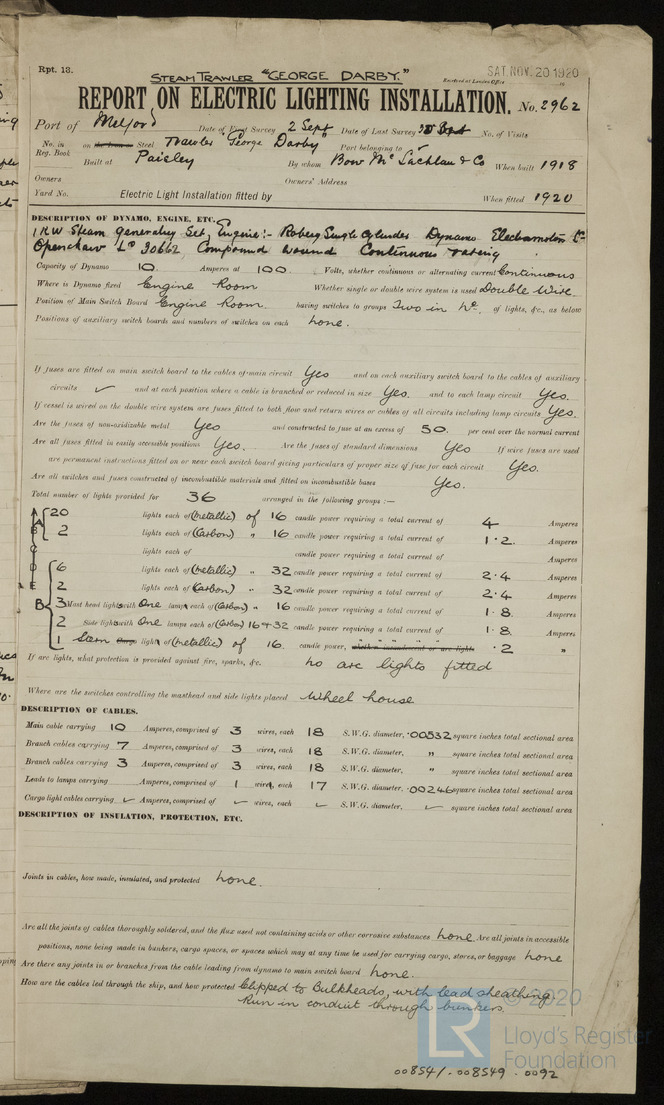 Rpt. 13.
STEAM TRAWLER "GEORGE DARBY."
Received at London Office
SAT. NOV. 20 1920
REPORT ON ELECTRIC LIGHTING INSTALLATION. No. 2962
Port of Milford Date of First Survey 2 Sept Date of Last Survey No. of Visits
No. in on the Iron or Steel Trawler George Darby Port belonging to
Reg. Book
Built at Paisley By whom Bow McLachlan & Co When built 1918
Owners Owners' Address
Yard No. Electric Light Installation fitted by When fitted 1920
DESCRIPTION OF DYNAMO, ENGINE, ETC.
1 KW Steam generating Set, Engine:- Robey Single Cylinder Dynamo Electromotors Ld
Openshaw No 30662 Compound wound Continuous rating
Capacity of Dynamo 10 Amperes at 100 Volts, whether continuous or alternating current Continuous
Where is Dynamo fixed Engine Room Whether single or double wire system is used Double Wire
Position of Main Switch Board Engine Room having switches to groups Two in No. of lights, &c., as below
Positions of auxiliary switch boards and numbers of switches on each None.
If fuses are fitted on main switch board to the cables of main circuit Yes and on each auxiliary switch board to the cables of auxiliary
circuits ✓ and at each position where a cable is branched or reduced in size Yes. and to each lamp circuit Yes.
If vessel is wired on the double wire system are fuses fitted to both flow and return wires or cables of all circuits including lamp circuits Yes.
Are the fuses of non-oxidizable metal Yes and constructed to fuse at an excess of 50. per cent over the normal current
Are all fuses fitted in easily accessible positions Yes. Are the fuses of standard dimensions Yes If wire fuses are used
are permanent instructions fitted on or near each switch board giving particulars of proper size of fuse for each circuit Yes.
Are all switches and fuses constructed of incombustible materials and fitted on incombustible bases Yes.
Total number of lights provided for 36 arranged in the following groups :—
A 20 lights each of (Metallic) of 16 candle power requiring a total current of 4 Amperes
2 lights each of (Carbon) " 16 candle power requiring a total current of 1.2. Amperes
lights each of candle power requiring a total current of Amperes
6 lights each of (Metallic) " 32 candle power requiring a total current of 2.4 Amperes
2 lights each of (Carbon) " 32 candle power requiring a total current of 2.4 Amperes
B 3 Mast head lights with One lamp each of (Carbon) " 16 candle power requiring a total current of 1.8. Amperes
2 Side lights with One lamp each of (Carbon) 16 + 32 candle power requiring a total current of 1.8. Amperes
1 Stern Cargo light of (Metallic) of 16. candle power, whether incandescent or arc lights .2 "
If arc lights, what protection is provided against fire, sparks, &c. No arc lights fitted
Where are the switches controlling the masthead and side lights placed Wheel house
DESCRIPTION OF CABLES.
Main cable carrying 10 Amperes, comprised of 3 wires, each 18 S.W.G. diameter, .00532 square inches total sectional area
Branch cables carrying 7 Amperes, comprised of 3 wires, each 18 S.W.G. diameter, " square inches total sectional area
Branch cables carrying 3 Amperes, comprised of 3 wires, each 18 S.W.G. diameter, " square inches total sectional area
Leads to lamps carrying Amperes, comprised of 1 wires, each 17 S.W.G. diameter, .00246 square inches total sectional area
Cargo light cables carrying ✓ Amperes, comprised of ✓ wires, each ✓ S.W.G. diameter, ✓ square inches total sectional area
DESCRIPTION OF INSULATION, PROTECTION, ETC.
Joints in cables, how made, insulated, and protected None.
Are all the joints of cables thoroughly soldered, and the flux used not containing acids or other corrosive substances None Are all joints in accessible
positions, none being made in bunkers, cargo spaces, or spaces which may at any time be used for carrying cargo, stores, or baggage None
Are there any joints in or branches from the cable leading from dynamo to main switch board None.
How are the cables led through the ship, and how protected Clipped to Bulkheads, with lead sheathing.
Run in conduit through bunkers
© 2020
LR Lloyd's Register
Foundation
008541-008549-0092